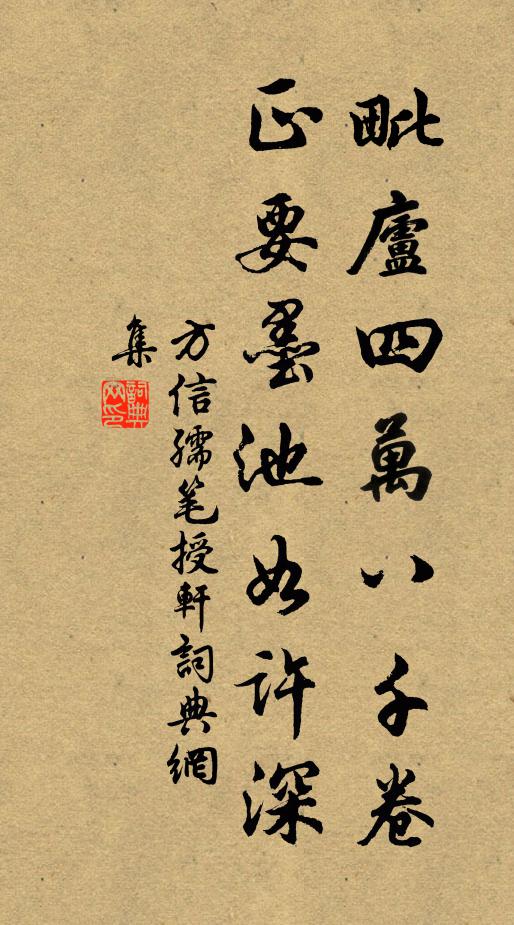 毗廬四萬八千卷
正要墨池如許深
方信孺笔授軒詞典網
集
詞典
网印